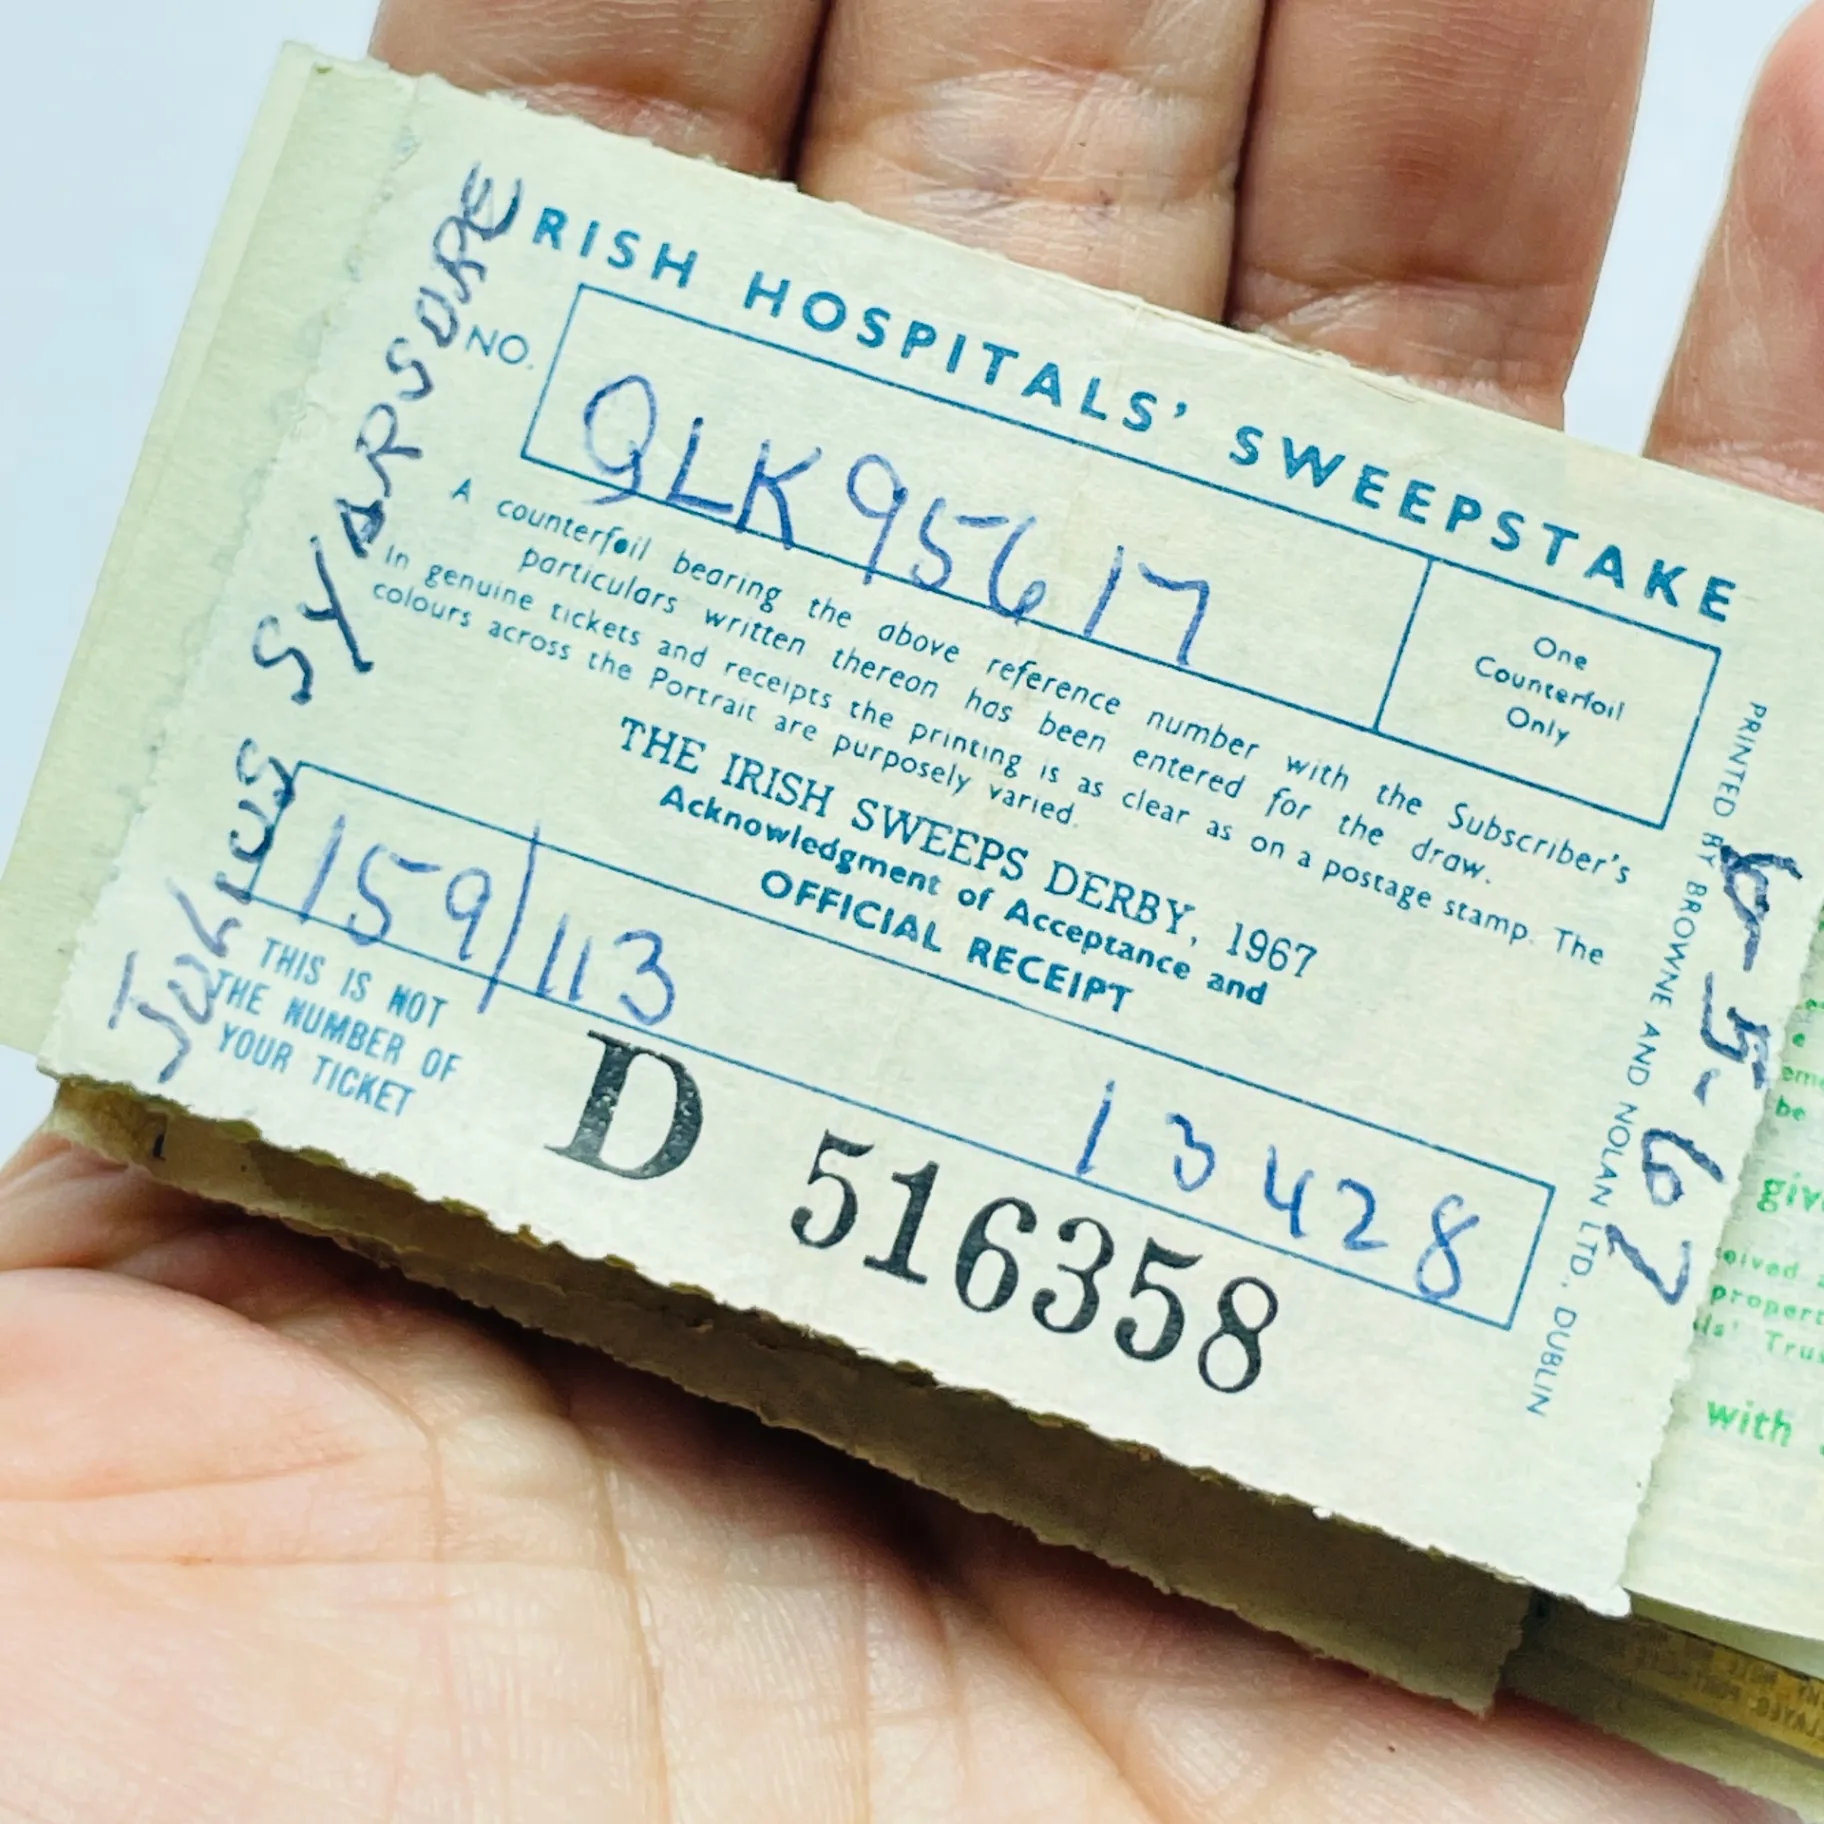 IRISH HOSPITALS' SWEEPSTAKE
NO. QLK95617
One
Counterfoil
Only
A counterfoil bearing the above reference number with the Subscriber's
particulars written thereon has been entered for the draw.
In genuine tickets and receipts the printing is as clear as on a postage stamp. The
colours across the Portrait are purposely varied.
THE IRISH SWEEPS DERBY, 1967
Acknowledgment of Acceptance and
OFFICIAL RECEIPT
159/113
13428
THIS IS NOT
THE NUMBER OF
YOUR TICKET
D 516358
PRINTED BY BROWNE AND NOLAN LTD., DUBLIN
6-5-67
JULIUS
be
with